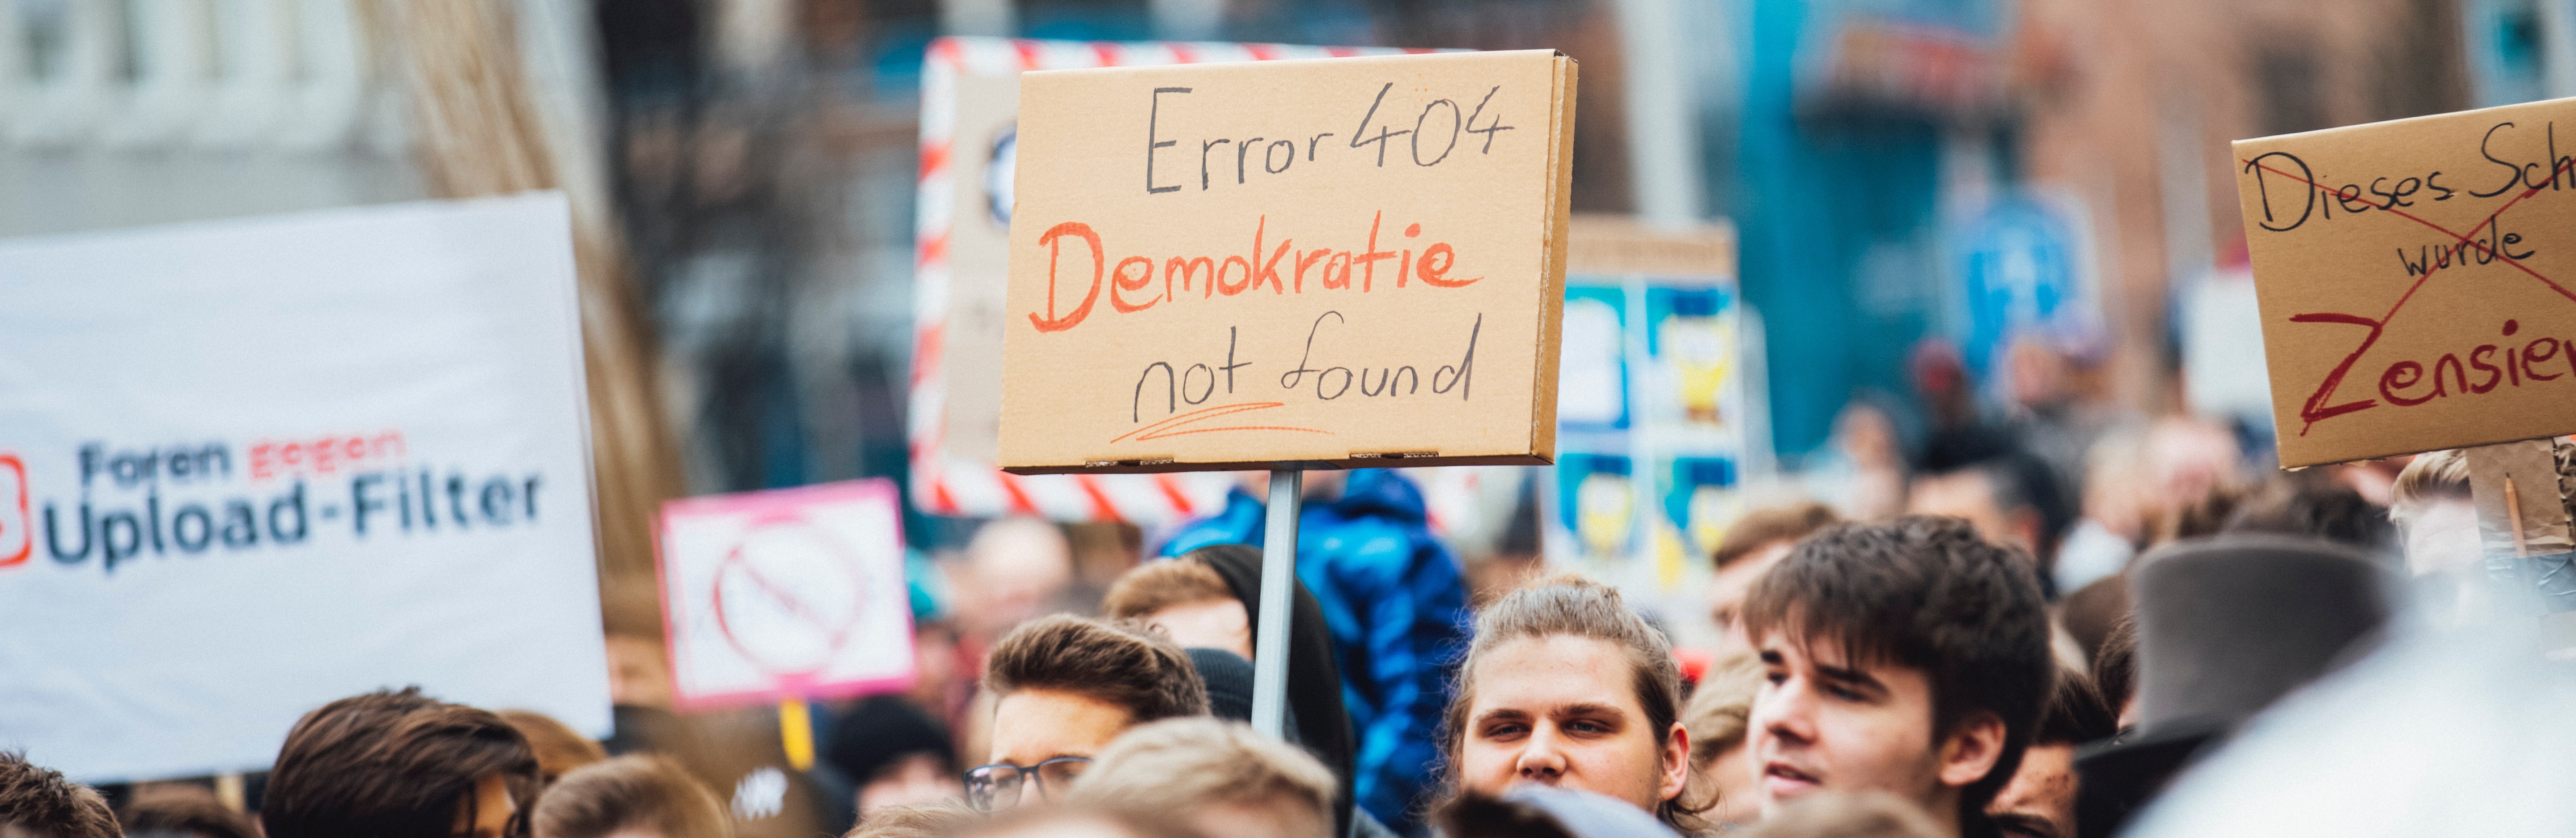 Foren gegen
Upload-Filter
Error 404
Demokratie
not found
Dieses Sch
wurde
Zensier